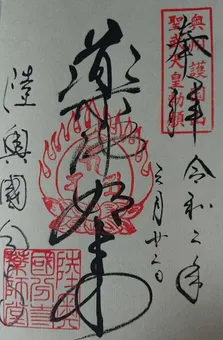 奉拝
令和二年
三月廿二日
薬師如来
陸奥國分寺
奥州
護國山
聖武天皇勅願
陸奥
國分寺
薬師堂